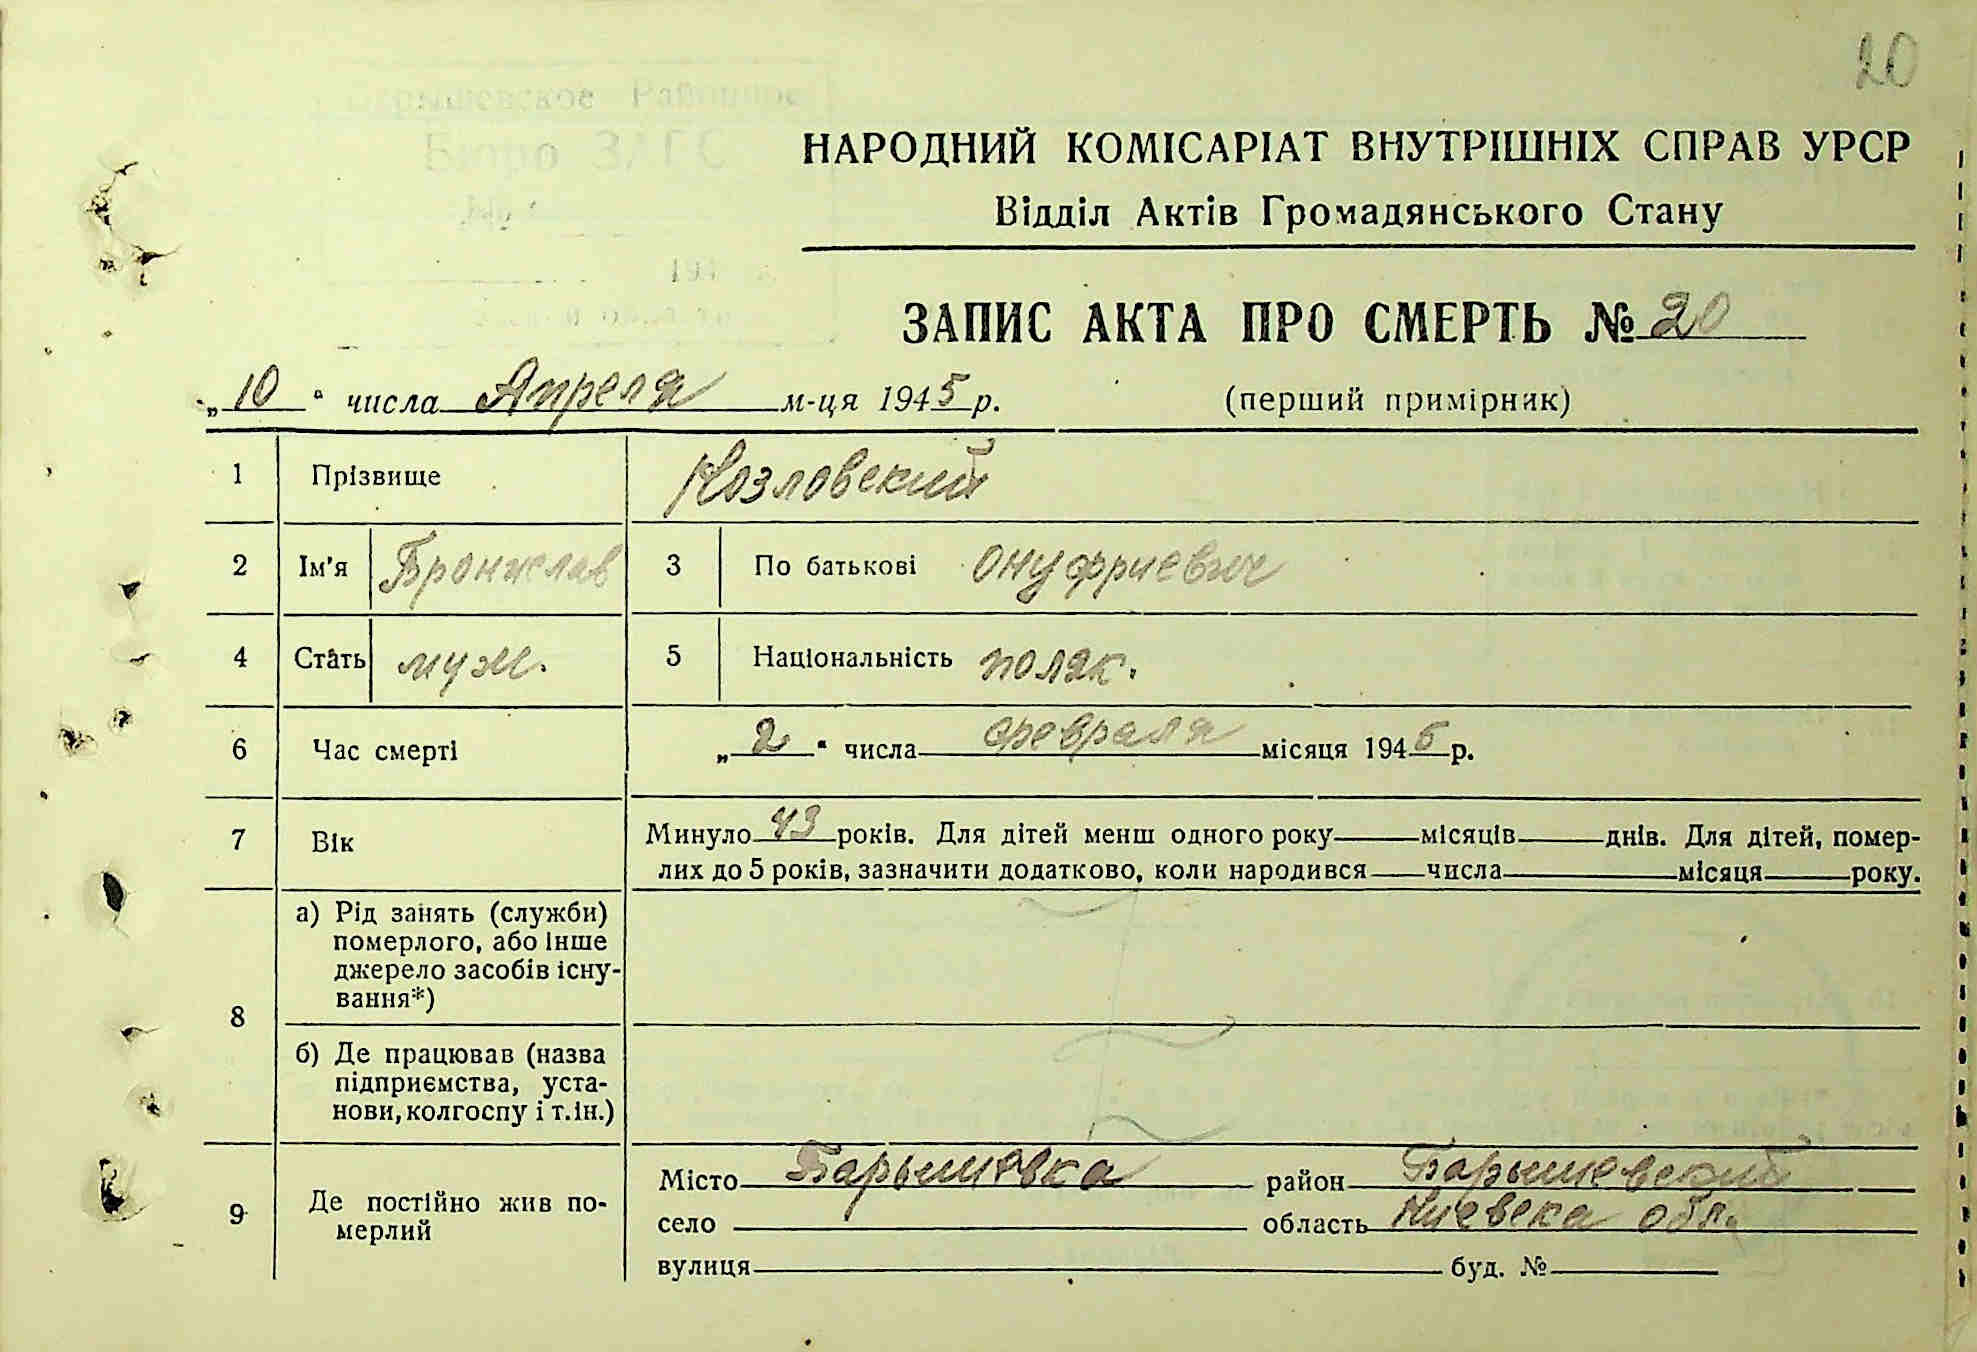 20
НАРОДНИЙ КОМІСАРІАТ ВНУТРІШНІХ СПРАВ УРСР
Відділ Актів Громадянського Стану
ЗАПИС АКТА ПРО СМЕРТЬ № 20
„10“ числа Апреля м-ця 1945 р. (перший примірник)
1 Прізвище Козловский
2 Ім'я Бронислав 3 По батькові Онуфриевич
4 Стать муж. 5 Національність поляк.
6 Час смерті „2“ числа февраля місяця 1945 р.
7 Вік Минуло 43 років. Для дітей менш одного року місяців днів. Для дітей, помер-
лих до 5 років, зазначити додатково, коли народився числа місяця року.
8 а) Рід занять (служби)
померлого, або інше
джерело засобів існу-
вання*)
б) Де працював (назва
підприємства, уста-
нови, колгоспу і т.ін.)
9 Де постійно жив по-
мерлий
Місто Барышевка район Барышевский
село область Киевска обл.
вулиця буд. №